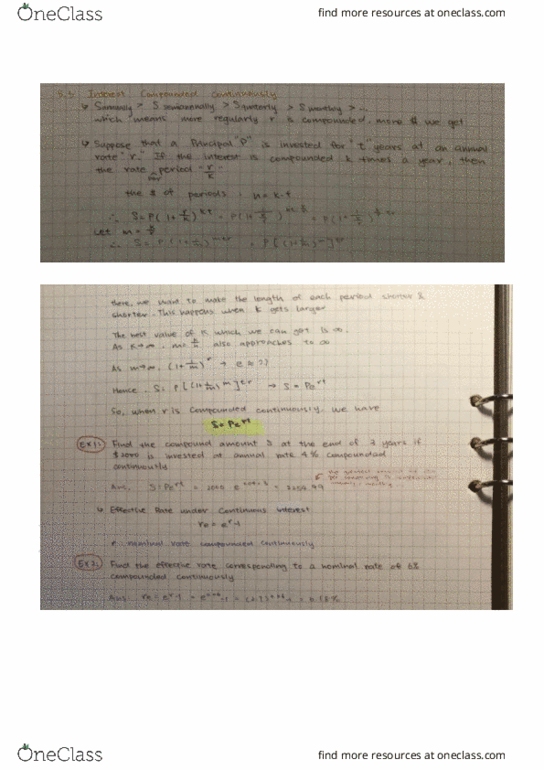 OneClass
find more resources at oneclass.com
5.3 Interest Compounded continuously
↳ Sannually > S semiannually > S quarterly > S monthly > ...
which means more regularly r is compounded, more $ we get
↳ Suppose that a Principal "P" is invested for "t" years at an annual
rate "r." If the interest is compounded k times a year, then
the rate per period = r/k
the # of periods : n = k·t
∴ S = P(1+
Let m = k/r
there, we want to make the length of each period shorter &
shorter. This happens when k gets larger
The best value of k which we can get is ∞.
As k→∞, m = k/r also approaches to ∞
As m→∞, (1+1/m)
Hence, S = P[(1+1/m)^m]^tr → S = Pe^rt
So, when r is compounded continuously, we have
S = Pe^rt
Ex1: Find the compound amount S at the end of
years if
is invested at annual rate 4% compounded
continuously
Ans: S = Pe^rt =
↳ Effective Rate under Continuous interest
re = e^r - 1
r = nominal rate compounded continuously
Ex2: Find the effective rate corresponding to a nominal rate of 6%
compounded continuously
Ans: re = e^r - 1 =
OneClass
find more resources at oneclass.com